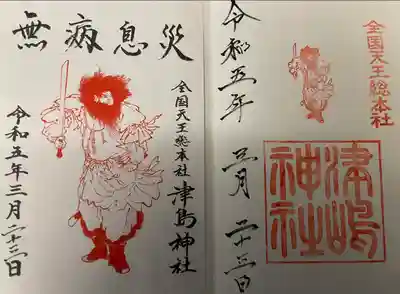 無病息災
全国天王総本社
津島神社
令和五年三月二十三日
全国天王総本社
津嶋神社
令和五年三月二十三日